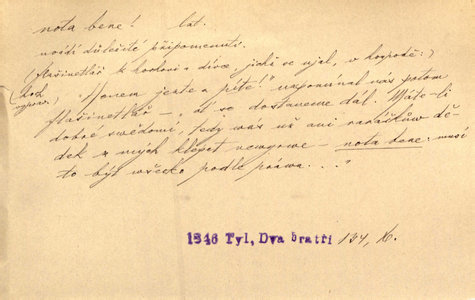 nota bene! lat.
uvádí důležité připomenutí.
(flašinetlář k hochovi a dívce, jichž se ujal, v hospodě:)
(hoch vypráv.) "Honem jezte a pijte!" napomínal nás potom
flašinetlář – "ať se dostaneme dál. Máte-li
dobré svědomí, tedy vás už ani radářkův dě-
dek z mých klepet nevyrve – nota bene: musí
to být všecko podle práva . . ."
1846 Tyl, Dva bratři 134, K.